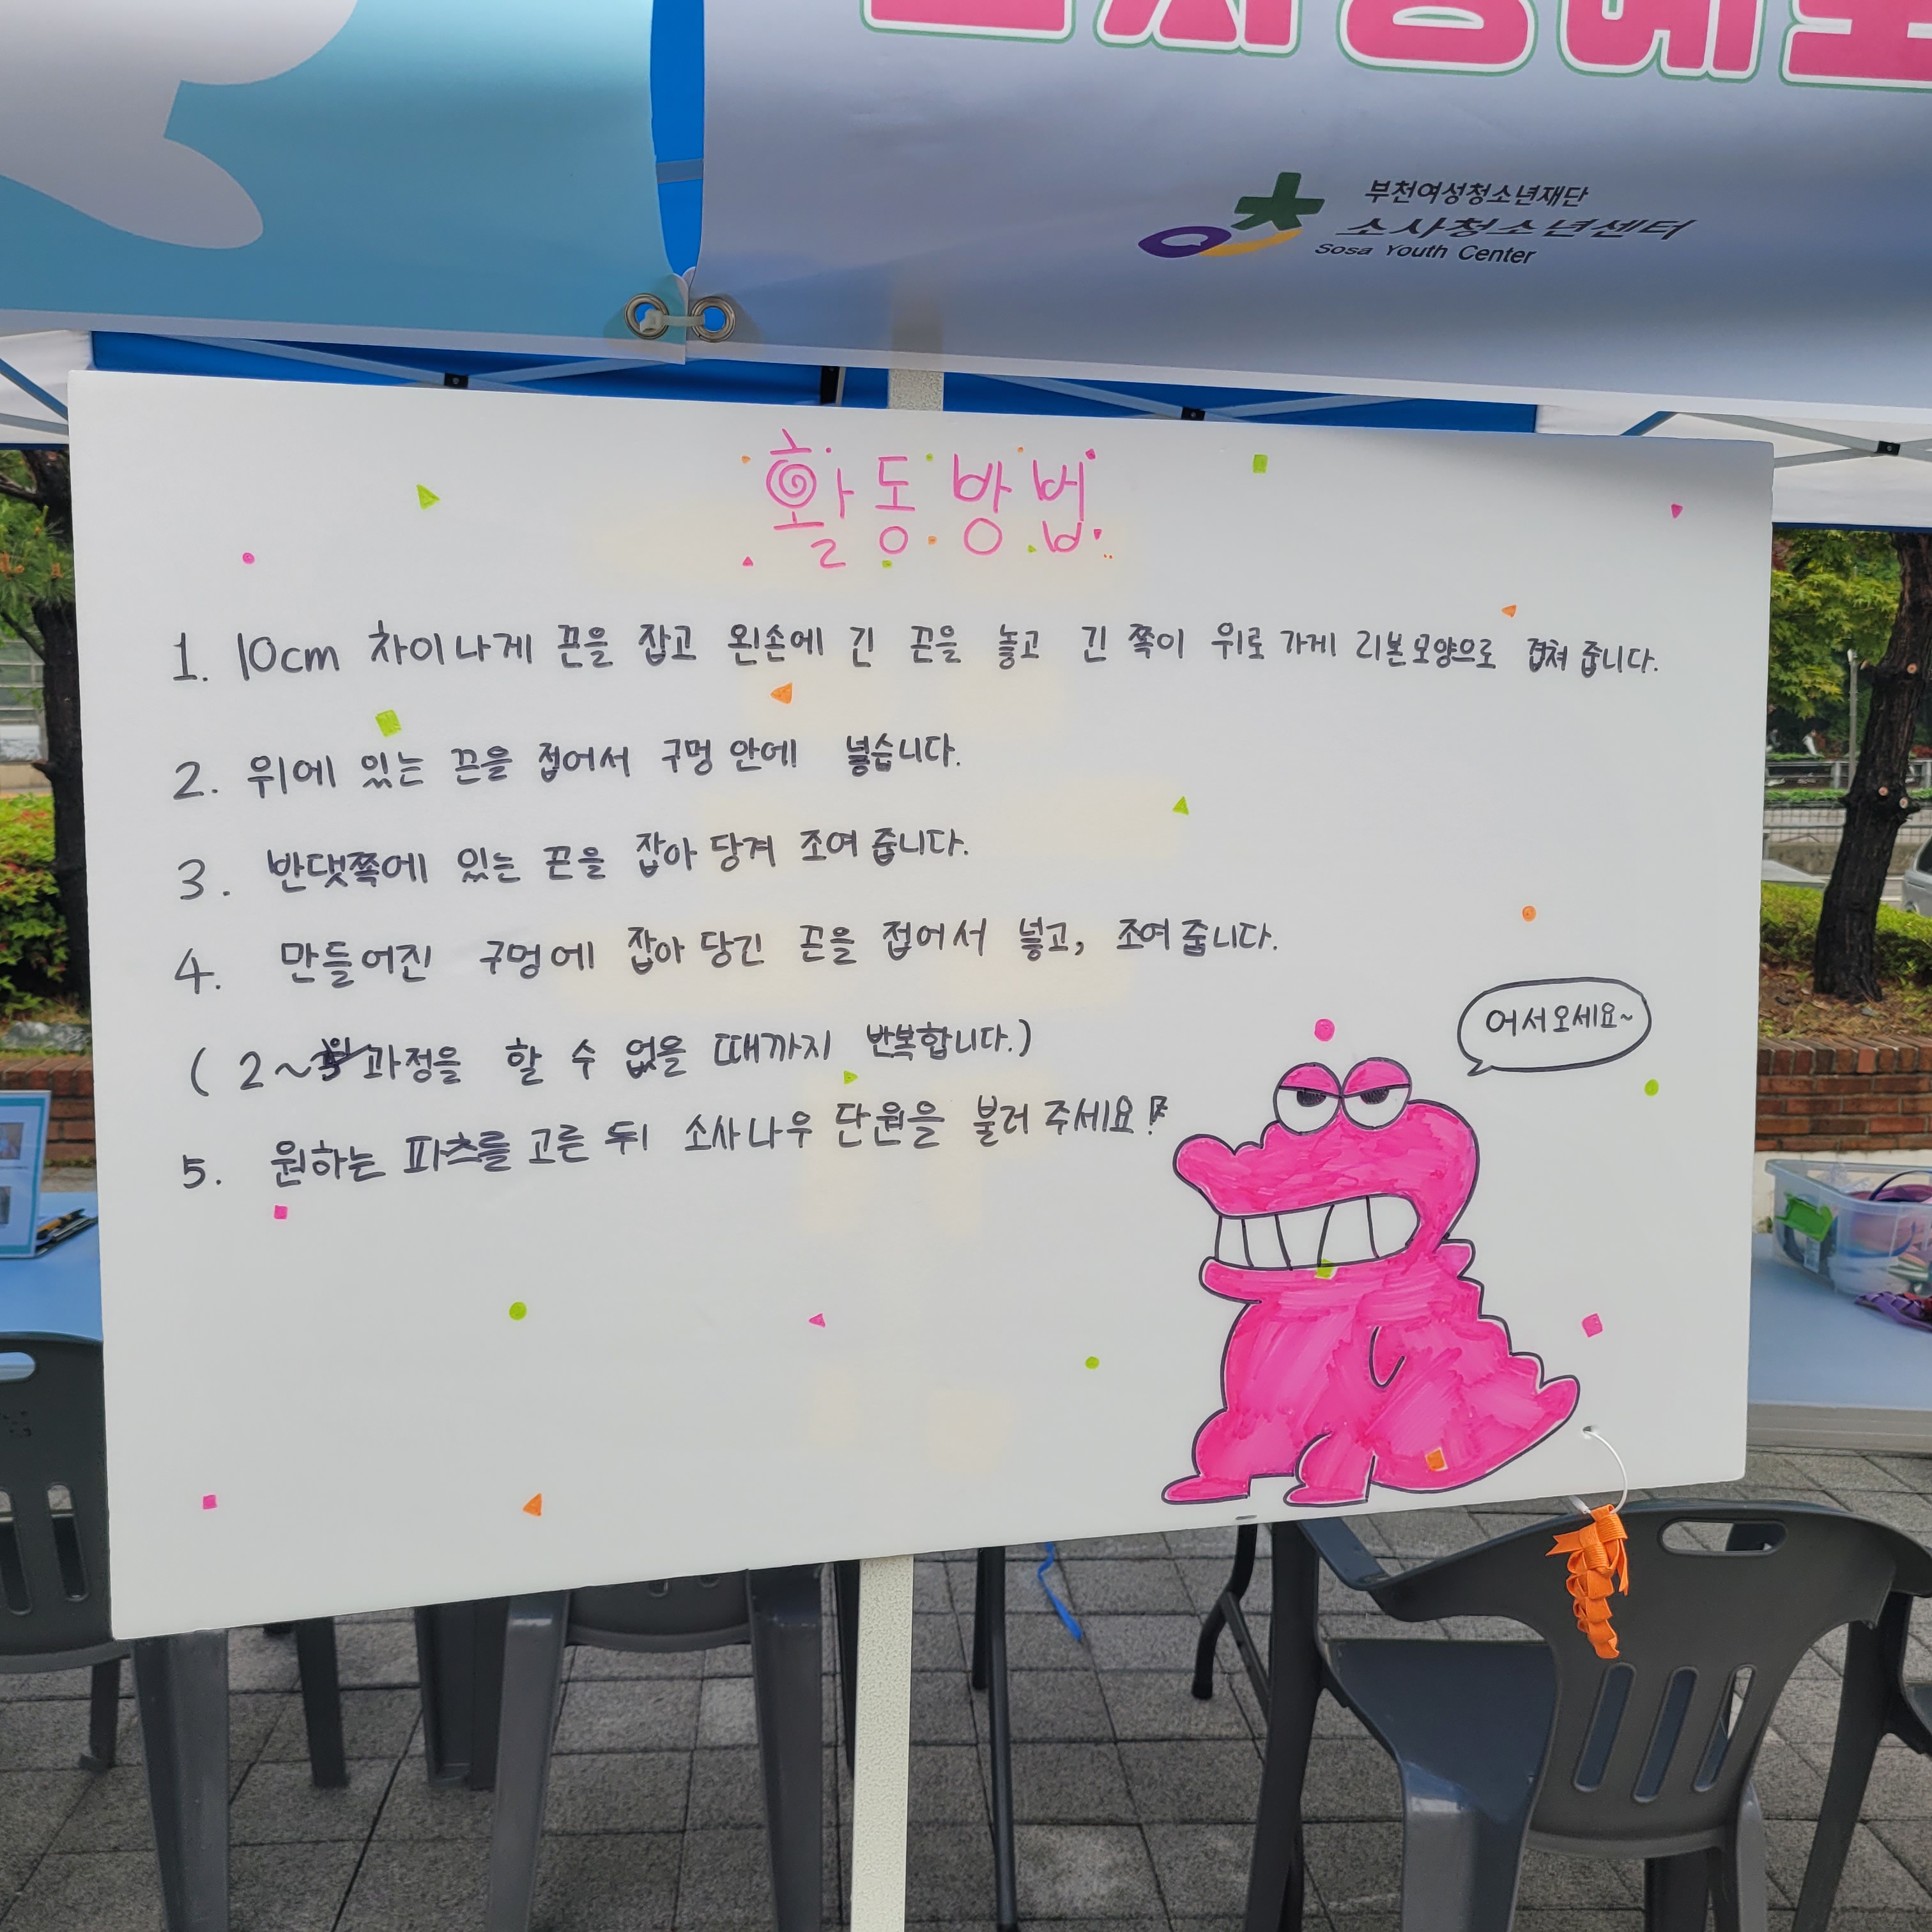 부천여성청소년재단
소사청소년센터
Sosa Youth Center
활동방법
1. 10cm 차이나게 끈을 잡고 왼손에 긴 끈을 놓고 긴 쪽이 위로 가게 리본모양으로 겹쳐 줍니다.
2. 위에 있는 끈을 접어서 구멍 안에 넣습니다.
3. 반댓쪽에 있는 끈을 잡아 당겨 조여 줍니다.
4. 만들어진 구멍에 잡아 당긴 끈을 접어서 넣고, 조여 줍니다.
어서오세요~
( 2~ 과정을 할 수 없을 때까지 반복합니다.)
5. 원하는 파츠를 고른 뒤 소사나우 단원을 불러 주세요!